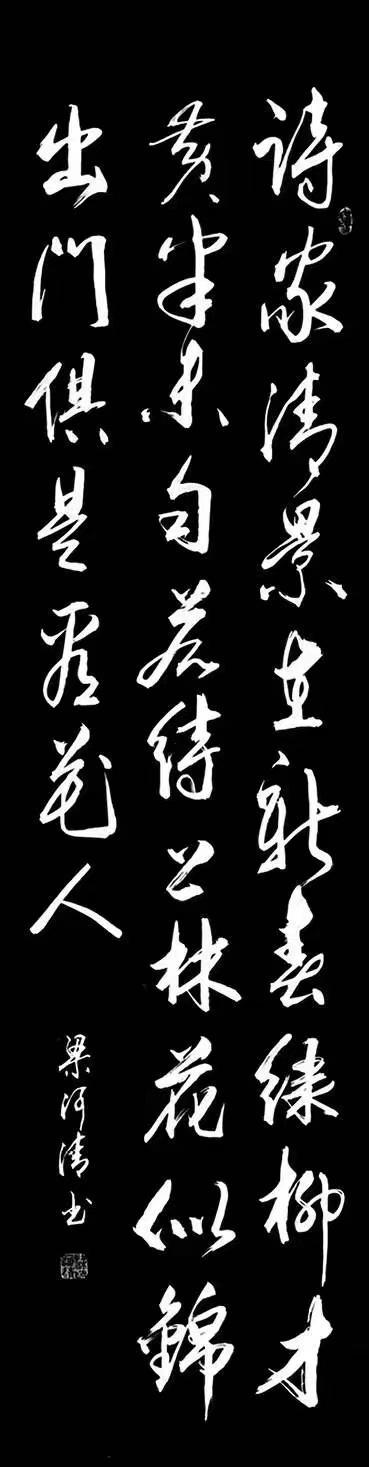 詩家清景在新春綠柳才
黃半未勻若待上林花似錦
出門俱是看花人
梁河清书